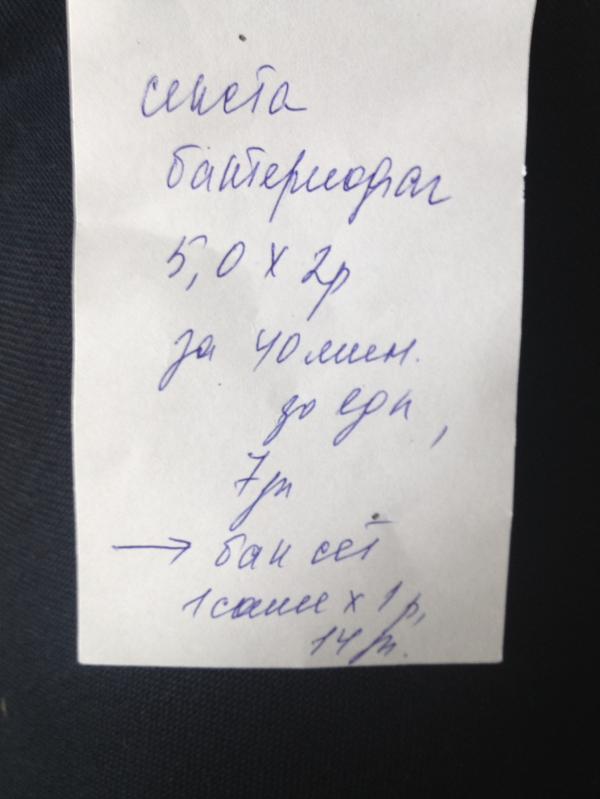 секста
бактериофаг
5,0 х 2р
за 40 мин.
до еды,
7дн
→ бак сет
1 саше х 1 р,
14 дн.